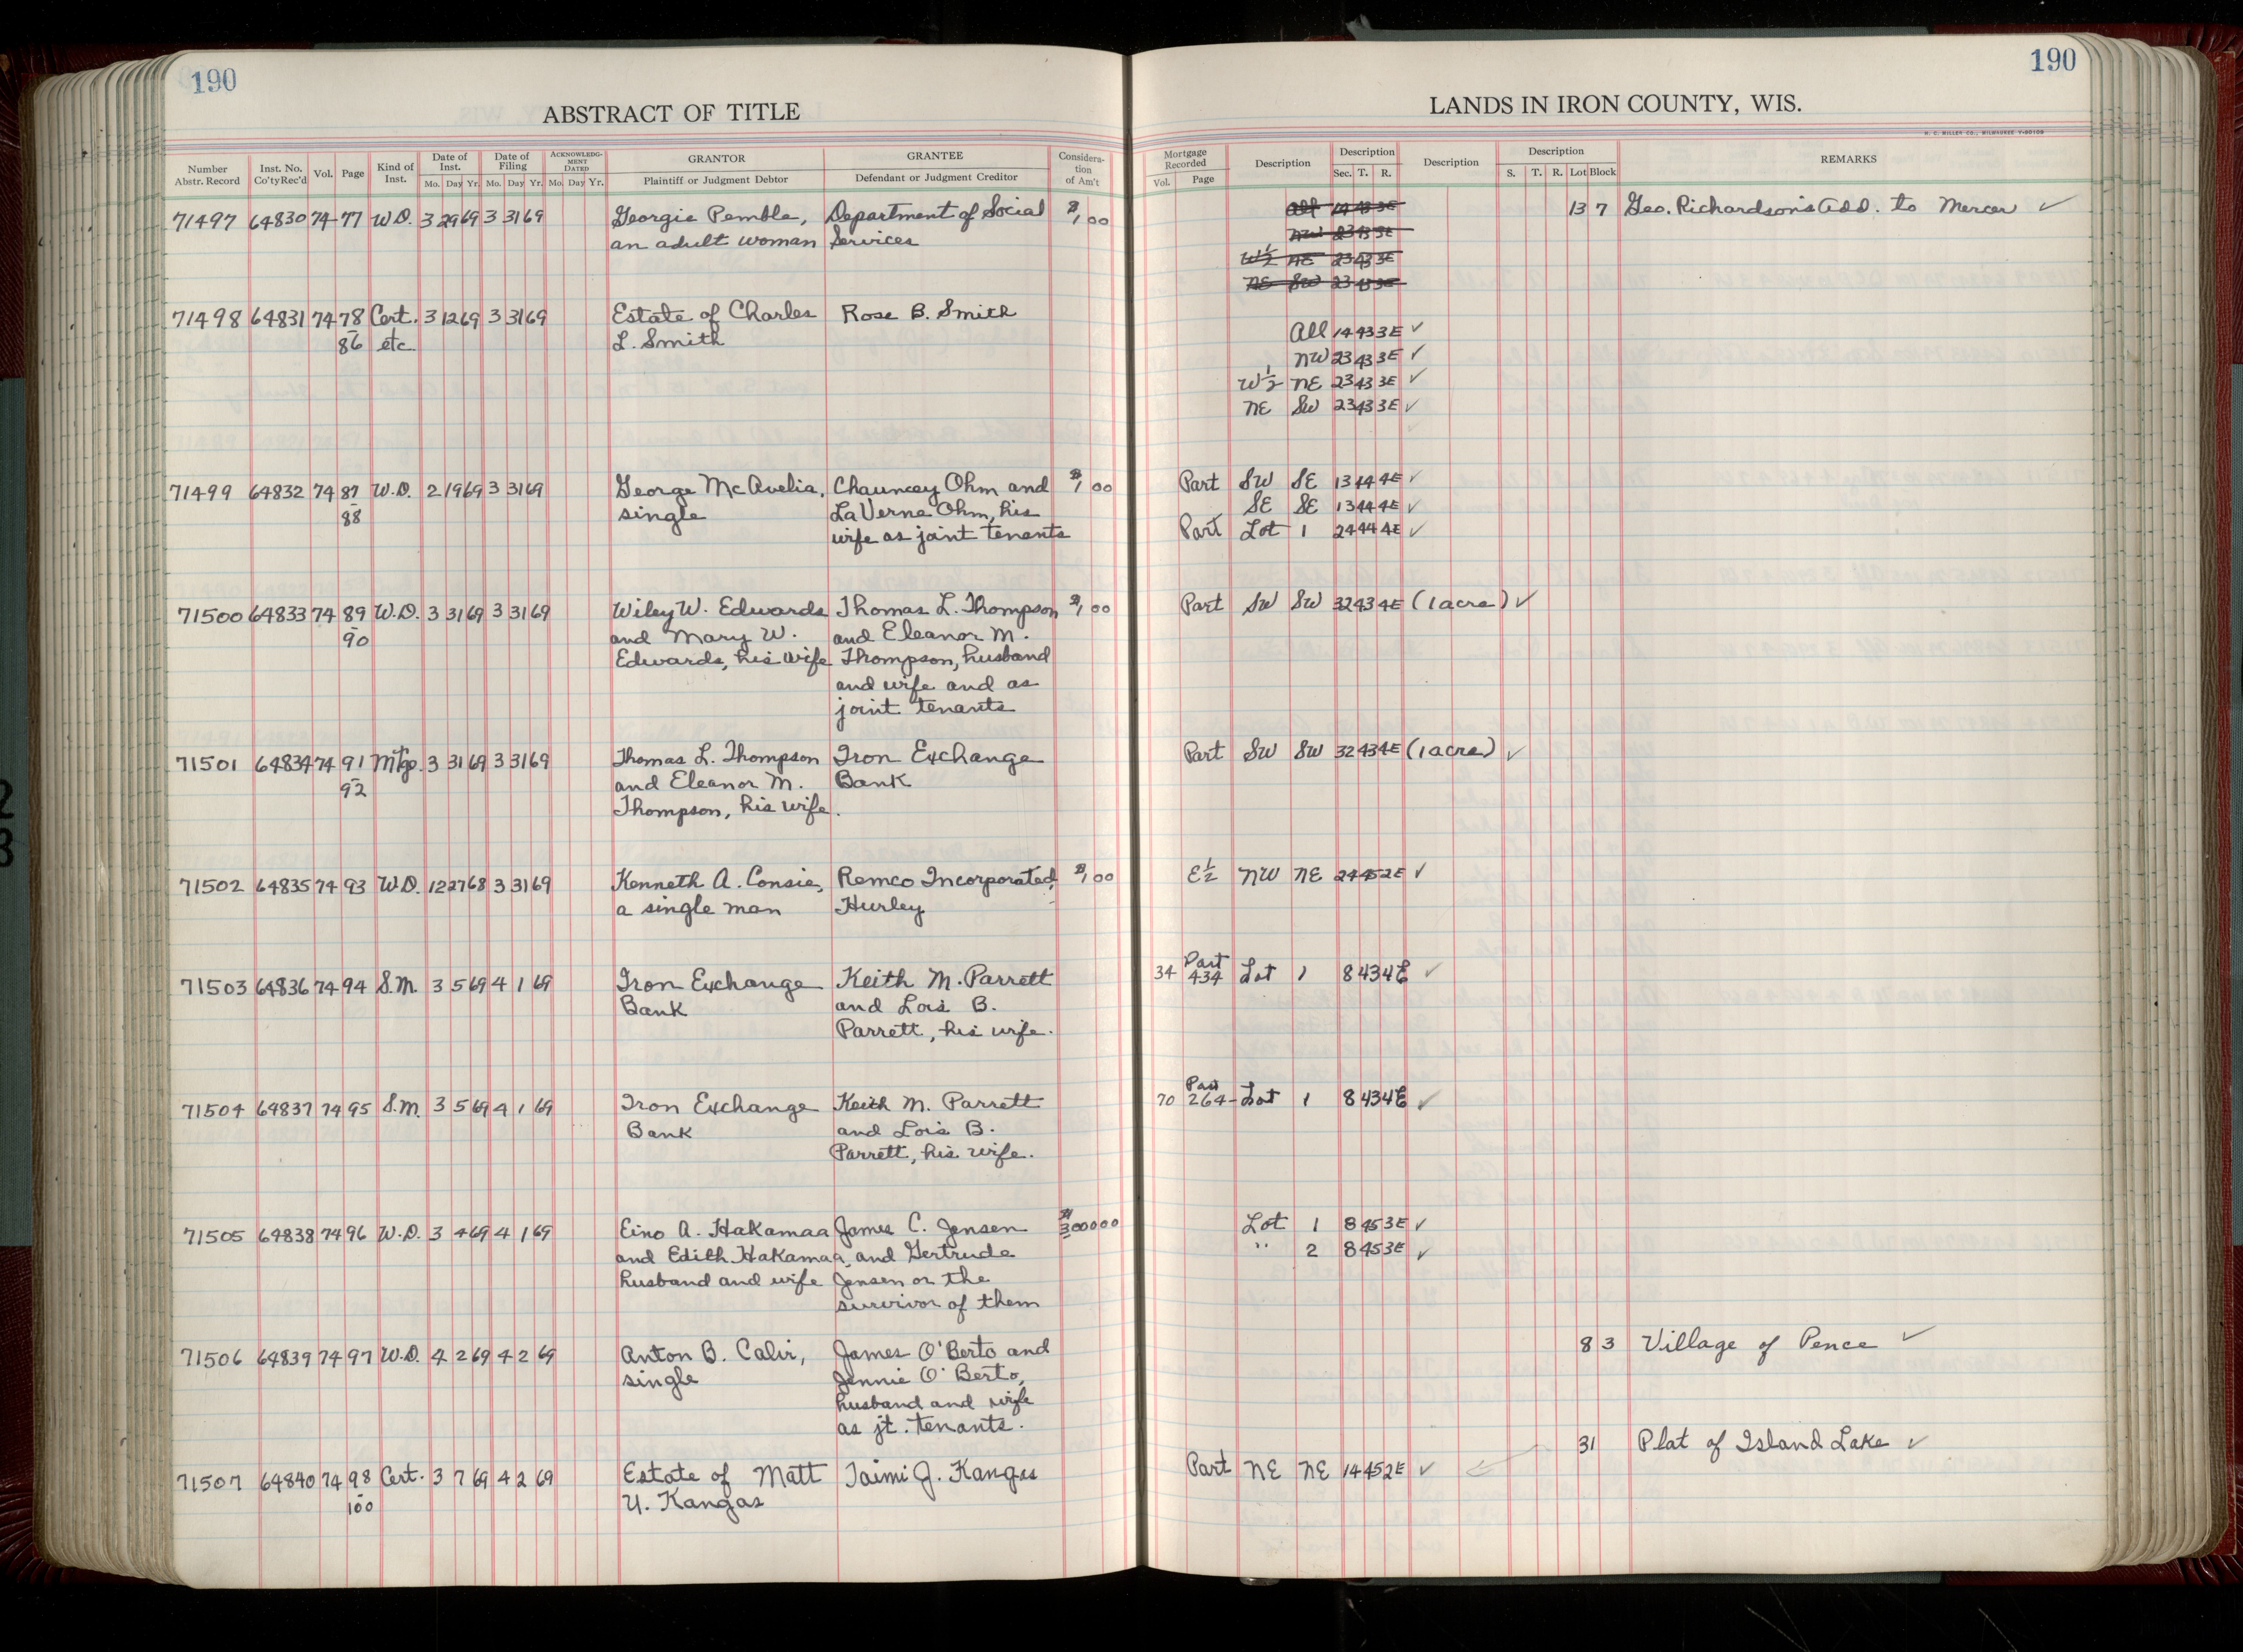 190
ABSTRACT OF TITLE
Number Abstr. Record Inst. No. Co'ty Rec'd Vol. Page Kind of Inst. Date of Inst. Mo. Day Yr. Date of Filing Mo. Day Yr. ACKNOWLEDGMENT DATED Mo. Day Yr. GRANTOR Plaintiff or Judgment Debtor GRANTEE Defendant or Judgment Creditor Consideration of Am't
71497 64830 74 77 W.D. 3 29 69 3 31 69 Georgie Pemble, Department of Social $1,00
an adult woman Services
71498 64831 74 78 Cert. 3 12 69 3 31 69 Estate of Charles Rose B. Smith
- 86 etc. L. Smith
71499 64832 74 87 W.D. 2 19 69 3 31 69 George McAvelia, Chauncey Ohm and $1,00
- 88 single LaVerne Ohm, his
wife as joint tenants
71500 64833 74 89 W.D. 3 31 69 3 31 69 Wiley W. Edwards Thomas L. Thompson $1,00
- 90 and Mary W. and Eleanor M.
Edwards, his wife Thompson, husband
and wife and as
joint tenants
71501 64834 74 91 Mtg. 3 31 69 3 31 69 Thomas L. Thompson Iron Exchange
- 92 and Eleanor M. Bank
Thompson, his wife.
71502 64835 74 93 W.D. 12 27 68 3 31 69 Kenneth A. Consie, Remco Incorporated, $1,00
a single man Hurley
71503 64836 74 94 S.M. 3 5 69 4 1 69 Iron Exchange Keith M. Parrett
Bank and Lois B.
Parrett, his wife.
71504 64837 74 95 S.M. 3 5 69 4 1 69 Iron Exchange Keith M. Parrett
Bank and Lois B.
Parrett, his wife.
71505 64838 74 96 W.D. 3 4 69 4 1 69 Eino A. Hakamaa James C. Jensen $3000 00
and Edith Hakamaa, and Gertrude
husband and wife Jensen or the
survivor of them
71506 64839 74 97 W.D. 4 2 69 4 2 69 Anton B. Calvi, James O'Berto and
single Jennie O'Berto,
husband and wife
as jt. tenants.
71507 64840 74 98 Cert. 3 7 69 4 2 69 Estate of Matt Taimi J. Kangas
- 100 U. Kangas
190
LANDS IN IRON COUNTY, WIS.
H. C. MILLER CO., MILWAUKEE
Mortgage Recorded Vol. Page Description Description Sec. T. R. Description Description S. T. R. Lot Block REMARKS
All 14 43 3E 13 7 Geo. Richardson's Add. to Mercer ✓
NW 23 43 3E
W½ NE 23 43 3E
NE SW 23 43 3E
All 14 43 3E ✓
NW 23 43 3E ✓
W½ NE 23 43 3E ✓
NE SW 23 43 3E ✓
Part SW SE 13 44 4E ✓
SE SE 13 44 4E ✓
Part Lot 1 24 44 4E ✓
Part SW SW 32 43 4E (1 acre) ✓
Part SW SW 32 43 4E (1 acre) ✓
E½ NW NE 24 45 2E ✓
Part
34 434 Lot 1 8 43 4E ✓
Part
70 264 - Lot 1 8 43 4E ✓
Lot 1 8 45 3E ✓
" 2 8 45 3E ✓
8 3 Village of Pence ✓
31 Plat of Island Lake ✓
Part NE NE 14 45 2E ✓